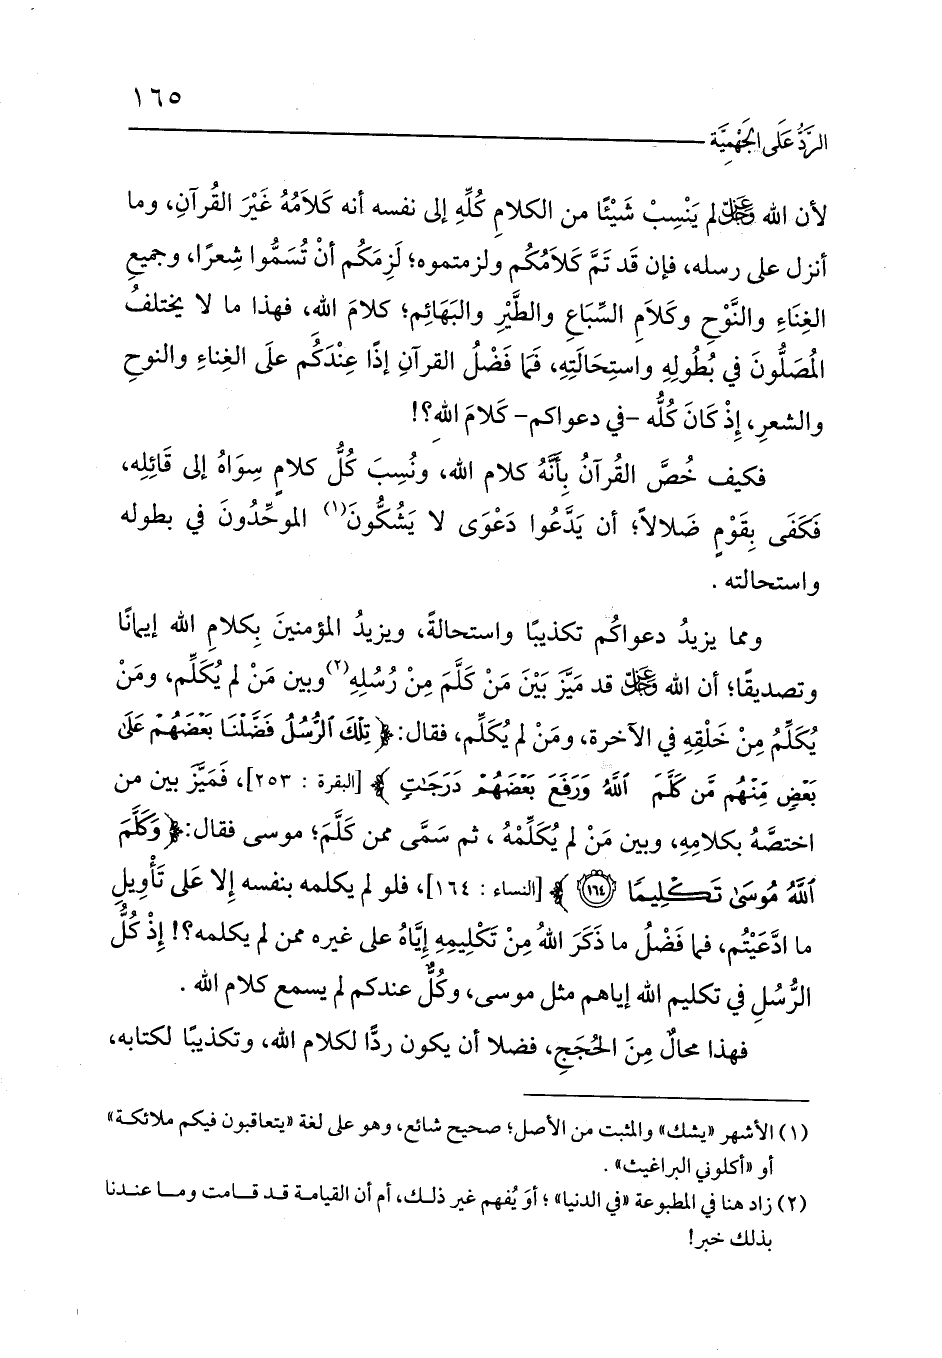 ١٦٥
الرَّدُّ عَلَى الجَهْمِيَّة
لأن الله ﷿ لم يَنْسِبْ شَيْئًا من الكلامِ كُلِّهِ إلى نفسه أنه كَلَامُهُ غَيْرَ القُرآنِ، وما
أنزل على رسله، فإن قد تَمَّ كَلَامُكُم ولزمتموه؛ لَزِمَكُم أنْ تُسَمُّوا شِعرًا، وجميعِ
الغِنَاءِ والنَّوْحِ وكَلَامِ السِّبَاعِ والطَّيْرِ والبَهَائِم؛ كلامَ الله، فهذا ما لا يختلفُ
المُصَلُّونَ في بُطُولِهِ واستِحَالَتِهِ، فَمَا فَضْلُ القرآنِ إذًا عِنْدَكُم على الغِناءِ والنوحِ
والشعرِ، إِذْ كَانَ كُلُّه -في دعواكم- كَلَامَ اللهِ؟!
فكيف خُصَّ القُرآنُ بِأَنَّهُ كلام الله، ونُسِبَ كُلُّ كلامٍ سِوَاهُ إلى قَائِلِه،
فَكَفَى بِقَوْمٍ ضَلالاً؛ أن يَدَّعُوا دَعْوَى لا يَشُكُّونَ(١) الموحِّدُونَ في بطوله
واستحالته .
ومما يزيدُ دعواكُم تكذيبًا واستحالةً، ويزيدُ المؤمنينَ بِكلامِ الله إيمانًا
وتصديقًا؛ أن الله ﷿ قد مَيَّزَ بَيْنَ مَنْ كَلَّمَ مِنْ رُسُلِهِ(٢) وبين مَنْ لم يُكَلِّم، ومَنْ
يُكَلِّمُ مِنْ خَلْقِهِ في الآخرة، ومَنْ لم يُكَلِّم، فقال: ﴿ تِلْكَ ٱلرُّسُلُ فَضَّلْنَا بَعْضَهُمْ عَلَىٰ
بَعْضٍ مِّنْهُم مَّن كَلَّمَ ٱللَّهُ وَرَفَعَ بَعْضَهُمْ دَرَجَٰتٍ ﴾ [البقرة : ٢٥٣]، فَمَيَّزَ بين من
اختصَّهُ بكلامِهِ، وبين مَنْ لم يُكَلِّمْهُ ، ثم سَمَّى ممن كَلَّمَ؛ موسى فقال: ﴿ وَكَلَّمَ
ٱللَّهُ مُوسَىٰ تَكْلِيمًا ١٦٤ ﴾ [النساء : ١٦٤]، فلو لم يكلمه بنفسه إلا عَلَى تَأْوِيلِ
ما ادَّعَيْتُم، فما فَضْلُ ما ذَكَرَ اللهُ مِنْ تَكْلِيمِهِ إِيَّاهُ على غيره ممن لم يكلمه؟! إذْ كُلُّ
الرُّسُلِ في تكليم الله إياهم مثل موسى، وكُلٌّ عندكم لم يسمع كلام الله .
فهذا محالٌ مِنَ الحُجَجِ، فضلا أن يكون ردًّا لكلام الله، وتكذيبًا لكتابه،
(١) الأشهر «يشك» والمثبت من الأصل؛ صحيح شائع، وهو على لغة «يتعاقبون فيكم ملائكة»
أو «أكلوني البراغيث» .
(٢) زاد هنا في المطبوعة «في الدنيا» ؛ أوَ يُفهم غير ذلك، أم أن القيامة قد قامت وما عندنا
بذلك خبر!